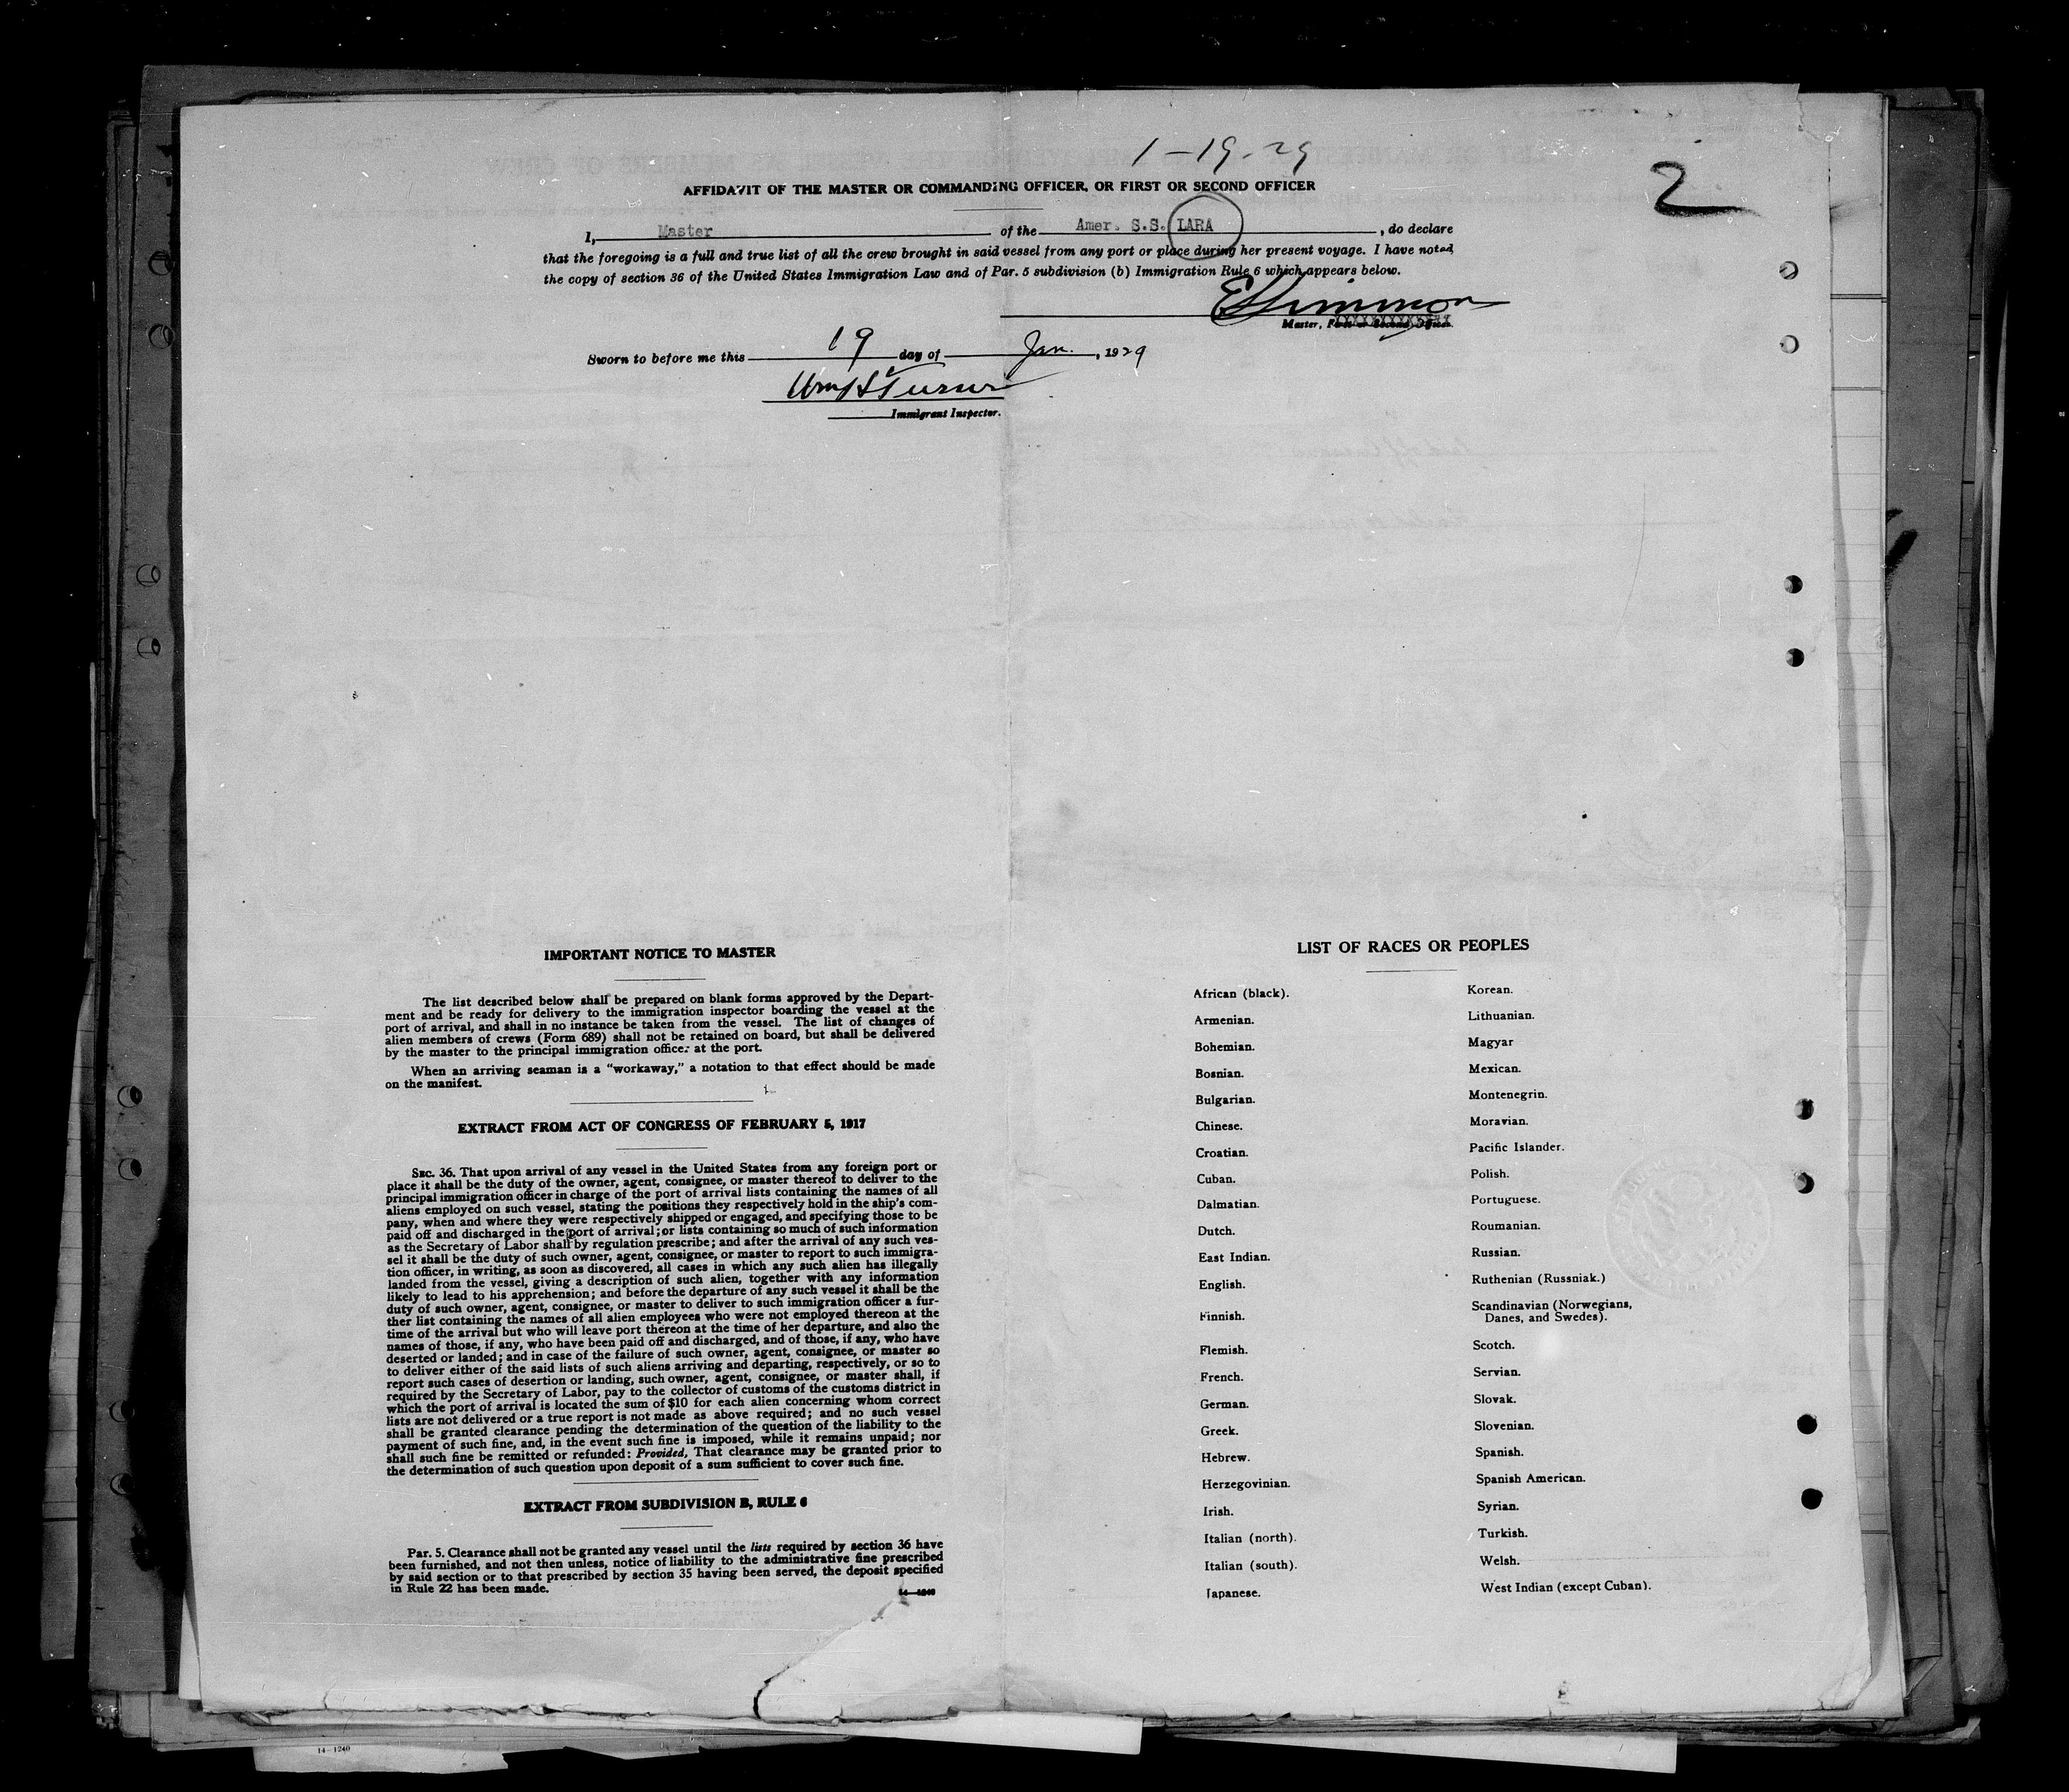 1-19-29
2
AFFIDAVIT OF THE MASTER OR COMMANDING OFFICER, OR FIRST OR SECOND OFFICER
I, Master of the Amer. S.S. LARA, do declare
that the foregoing is a full and true list of all the crew brought in said vessel from any port or place during her present voyage. I have noted
the copy of section 36 of the United States Immigration Law and of Par. 5 subdivision (b) Immigration Rule 6 which appears below.
Master, First or Second Officer.
Sworn to before me this 19 day of Jan., 1929
Wm H Turner
Immigrant Inspector.
IMPORTANT NOTICE TO MASTER
The list described below shall be prepared on blank forms approved by the Depart-
ment and be ready for delivery to the immigration inspector boarding the vessel at the
port of arrival, and shall in no instance be taken from the vessel. The list of changes of
alien members of crews (Form 689) shall not be retained on board, but shall be delivered
by the master to the principal immigration officer at the port.
When an arriving seaman is a "workaway," a notation to that effect should be made
on the manifest.
EXTRACT FROM ACT OF CONGRESS OF FEBRUARY 5, 1917
SEC. 36. That upon arrival of any vessel in the United States from any foreign port or
place it shall be the duty of the owner, agent, consignee, or master thereof to deliver to the
principal immigration officer in charge of the port of arrival lists containing the names of all
aliens employed on such vessel, stating the positions they respectively hold in the ship's com-
pany, when and where they were respectively shipped or engaged, and specifying those to be
paid off and discharged in the port of arrival; or lists containing so much of such information
as the Secretary of Labor shall by regulation prescribe; and after the arrival of any such ves-
sel it shall be the duty of such owner, agent, consignee, or master to report to such immigra-
tion officer, in writing, as soon as discovered, all cases in which any such alien has illegally
landed from the vessel, giving a description of such alien, together with any information
likely to lead to his apprehension; and before the departure of any such vessel it shall be the
duty of such owner, agent, consignee, or master to deliver to such immigration officer a fur-
ther list containing the names of all alien employees who were not employed thereon at the
time of the arrival but who will leave port thereon at the time of her departure, and also the
names of those, if any, who have been paid off and discharged, and of those, if any, who have
deserted or landed; and in case of the failure of such owner, agent, consignee, or master so
to deliver either of the said lists of such aliens arriving and departing, respectively, or so to
report such cases of desertion or landing, such owner, agent, consignee, or master shall, if
required by the Secretary of Labor, pay to the collector of customs of the customs district in
which the port of arrival is located the sum of $10 for each alien concerning whom correct
lists are not delivered or a true report is not made as above required; and no such vessel
shall be granted clearance pending the determination of the question of the liability to the
payment of such fine, and, in the event such fine is imposed, while it remains unpaid; nor
shall such fine be remitted or refunded: Provided, That clearance may be granted prior to
the determination of such question upon deposit of a sum sufficient to cover such fine.
EXTRACT FROM SUBDIVISION B, RULE 6
Par. 5. Clearance shall not be granted any vessel until the lists required by section 36 have
been furnished, and not then unless, notice of liability to the administrative fine prescribed
by said section or to that prescribed by section 35 having been served, the deposit specified
in Rule 22 has been made.
14—1240
LIST OF RACES OR PEOPLES
African (black).
Armenian.
Bohemian.
Bosnian.
Bulgarian.
Chinese.
Croatian.
Cuban.
Dalmatian.
Dutch.
East Indian.
English.
Finnish.
Flemish.
French.
German.
Greek.
Hebrew.
Herzegovinian.
Irish.
Italian (north).
Italian (south).
Japanese.
Korean.
Lithuanian.
Magyar
Mexican.
Montenegrin.
Moravian.
Pacific Islander.
Polish.
Portuguese.
Roumanian.
Russian.
Ruthenian (Russniak.)
Scandinavian (Norwegians,
Danes, and Swedes).
Scotch.
Servian.
Slovak.
Slovenian.
Spanish.
Spanish American.
Syrian.
Turkish.
Welsh.
West Indian (except Cuban).
14-1240